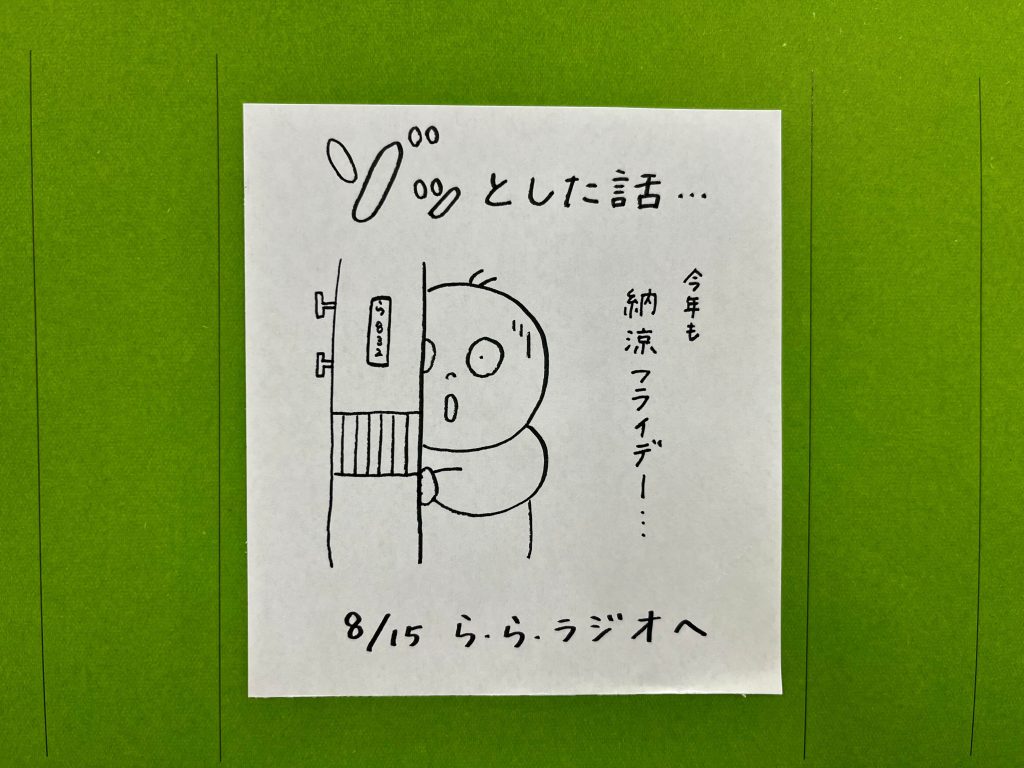 ゾッとした話…
今年も
納涼フライデー…
ら832
8/15 ら.ら.ラジオへ